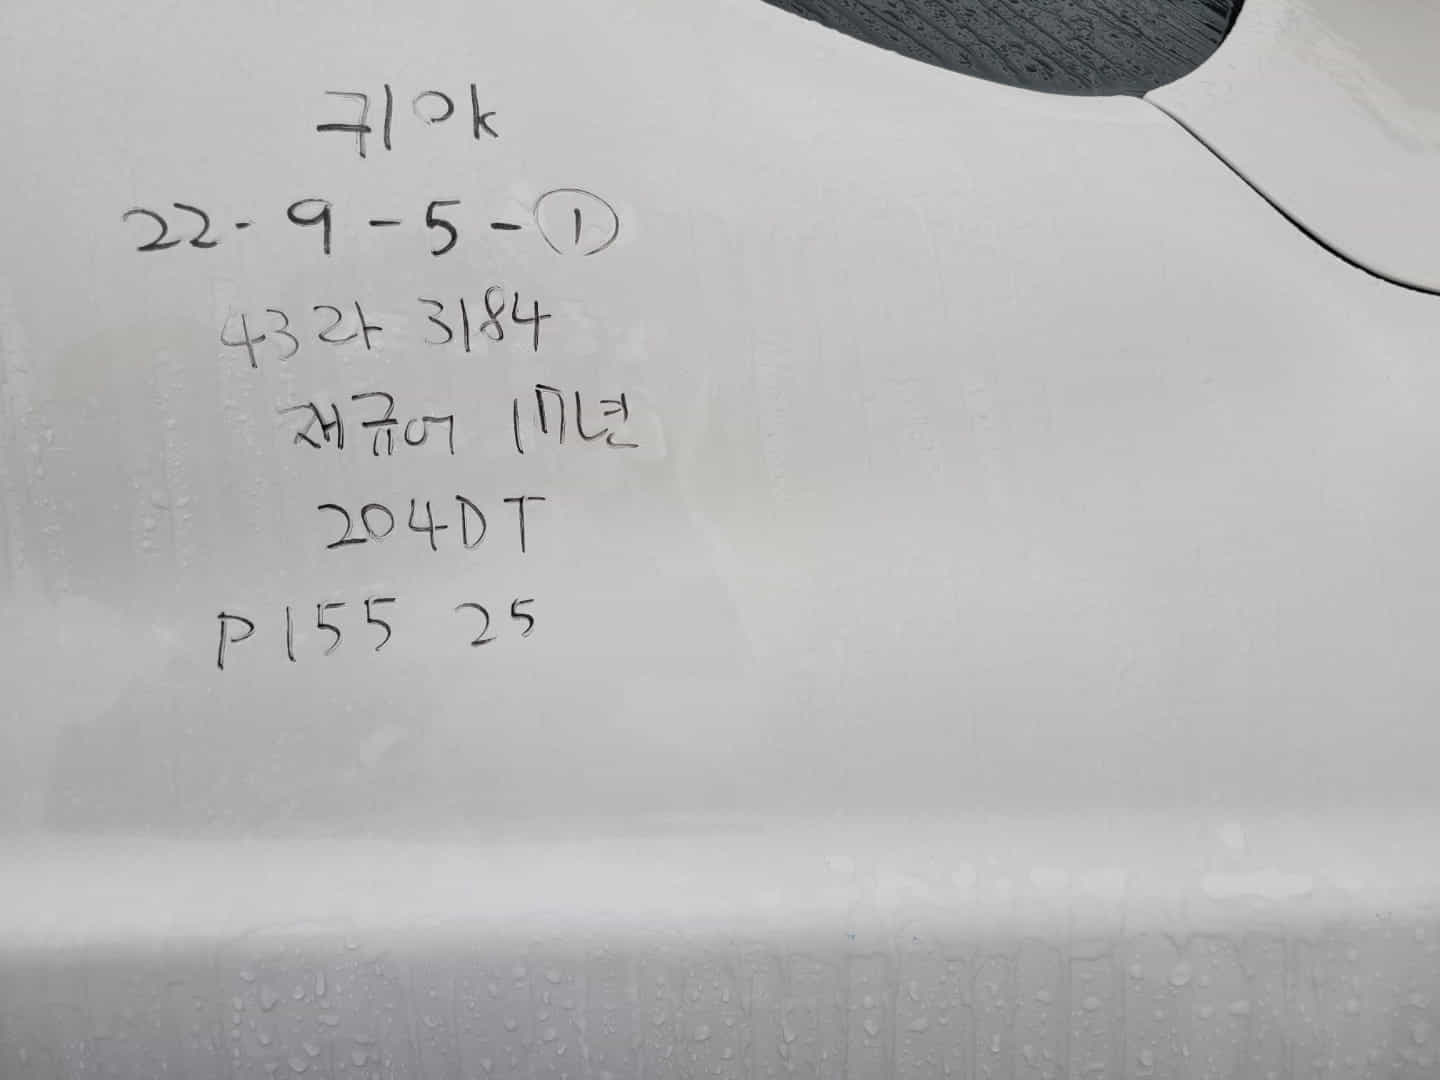 귀아
22-9-5-①
43라 3184
재규어 17년
204DT
P155 25